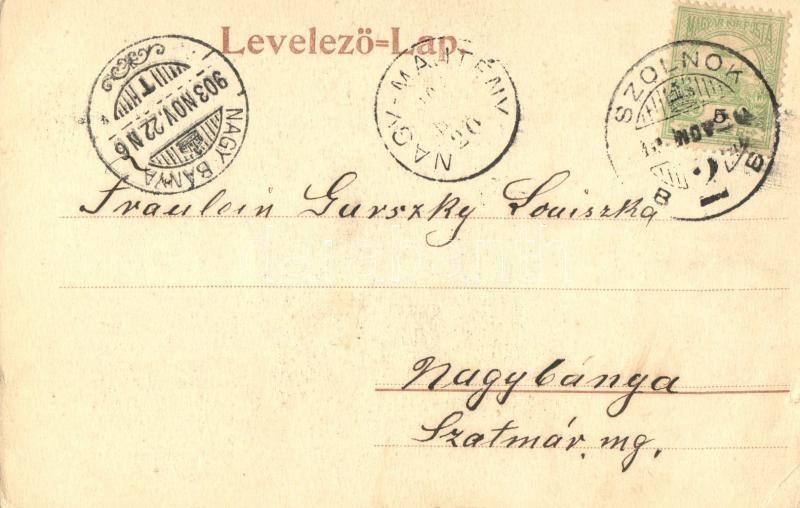 Levelező=Lap.
MAGYAR KIR. POSTA
5
NAGY BÁNYA
903 NOV. 22 N 6
T
NAGY-MAJTÉNY
20
SZOLNOK
NOV
B B
Fräulein Gurszky Louiszka
darabanth
Nagybánya
Szatmár. mg.